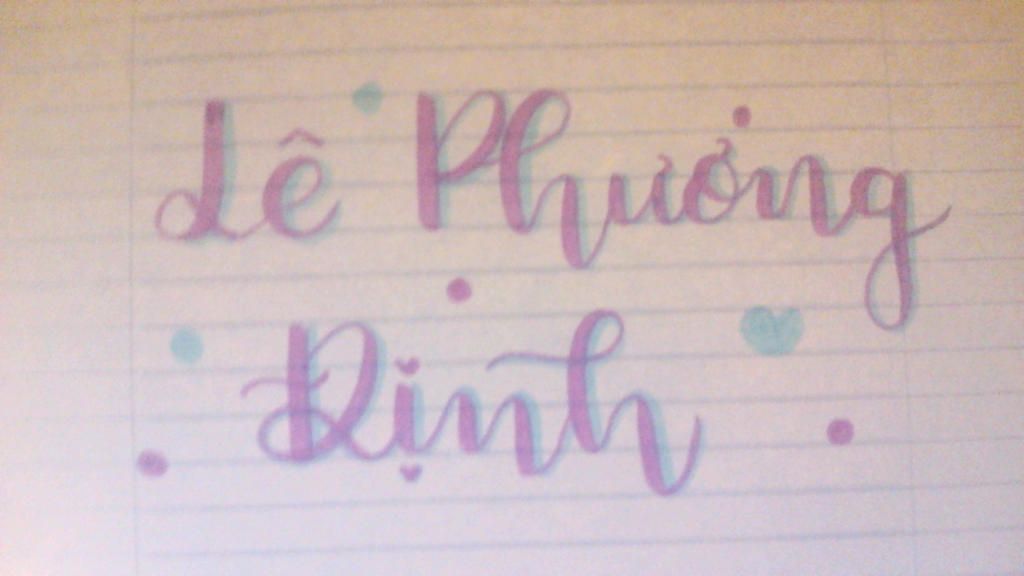 Lê Phương
Định